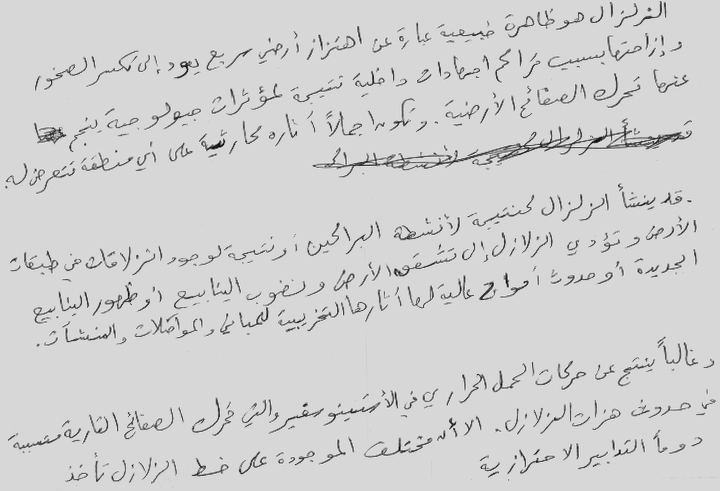 الزلزال هو ظاهرة طبيعية عبارة عن اهتزاز أرضي سريع يعود إلى تكسر الصخور
وإزاحتها بسبب تراكم اجهادات داخلية نتيجة لمؤثرات جيولوجية ينجم
عنها تحرك الصفائح الأرضية. وتكون اجمالاً آثاره كارثية على أي منطقة تتعرض له.
قد ينشأ الزلزال كنتيجة لأنشطة البراكين أو نتيجة لوجود انزلاقات في طبقات
الأرض وتؤدي الزلازل إلى تشقق الأرض ونضوب الينابيع أو ظهور الينابيع
الجديدة أو حدوث أمواج عالية لها آثارها التخريبية للمباني والمواصلات والمنشآت.
وغالباً ينتج عن حركات الحمل الحراري في الأستينوسفير والتي تحرك الصفائح القارية مسببة
في حدوث هزات الزلازل. الا أن مختلف الموجودة على خط الزلازل تأخذ
دوماً التدابير الاحترازية